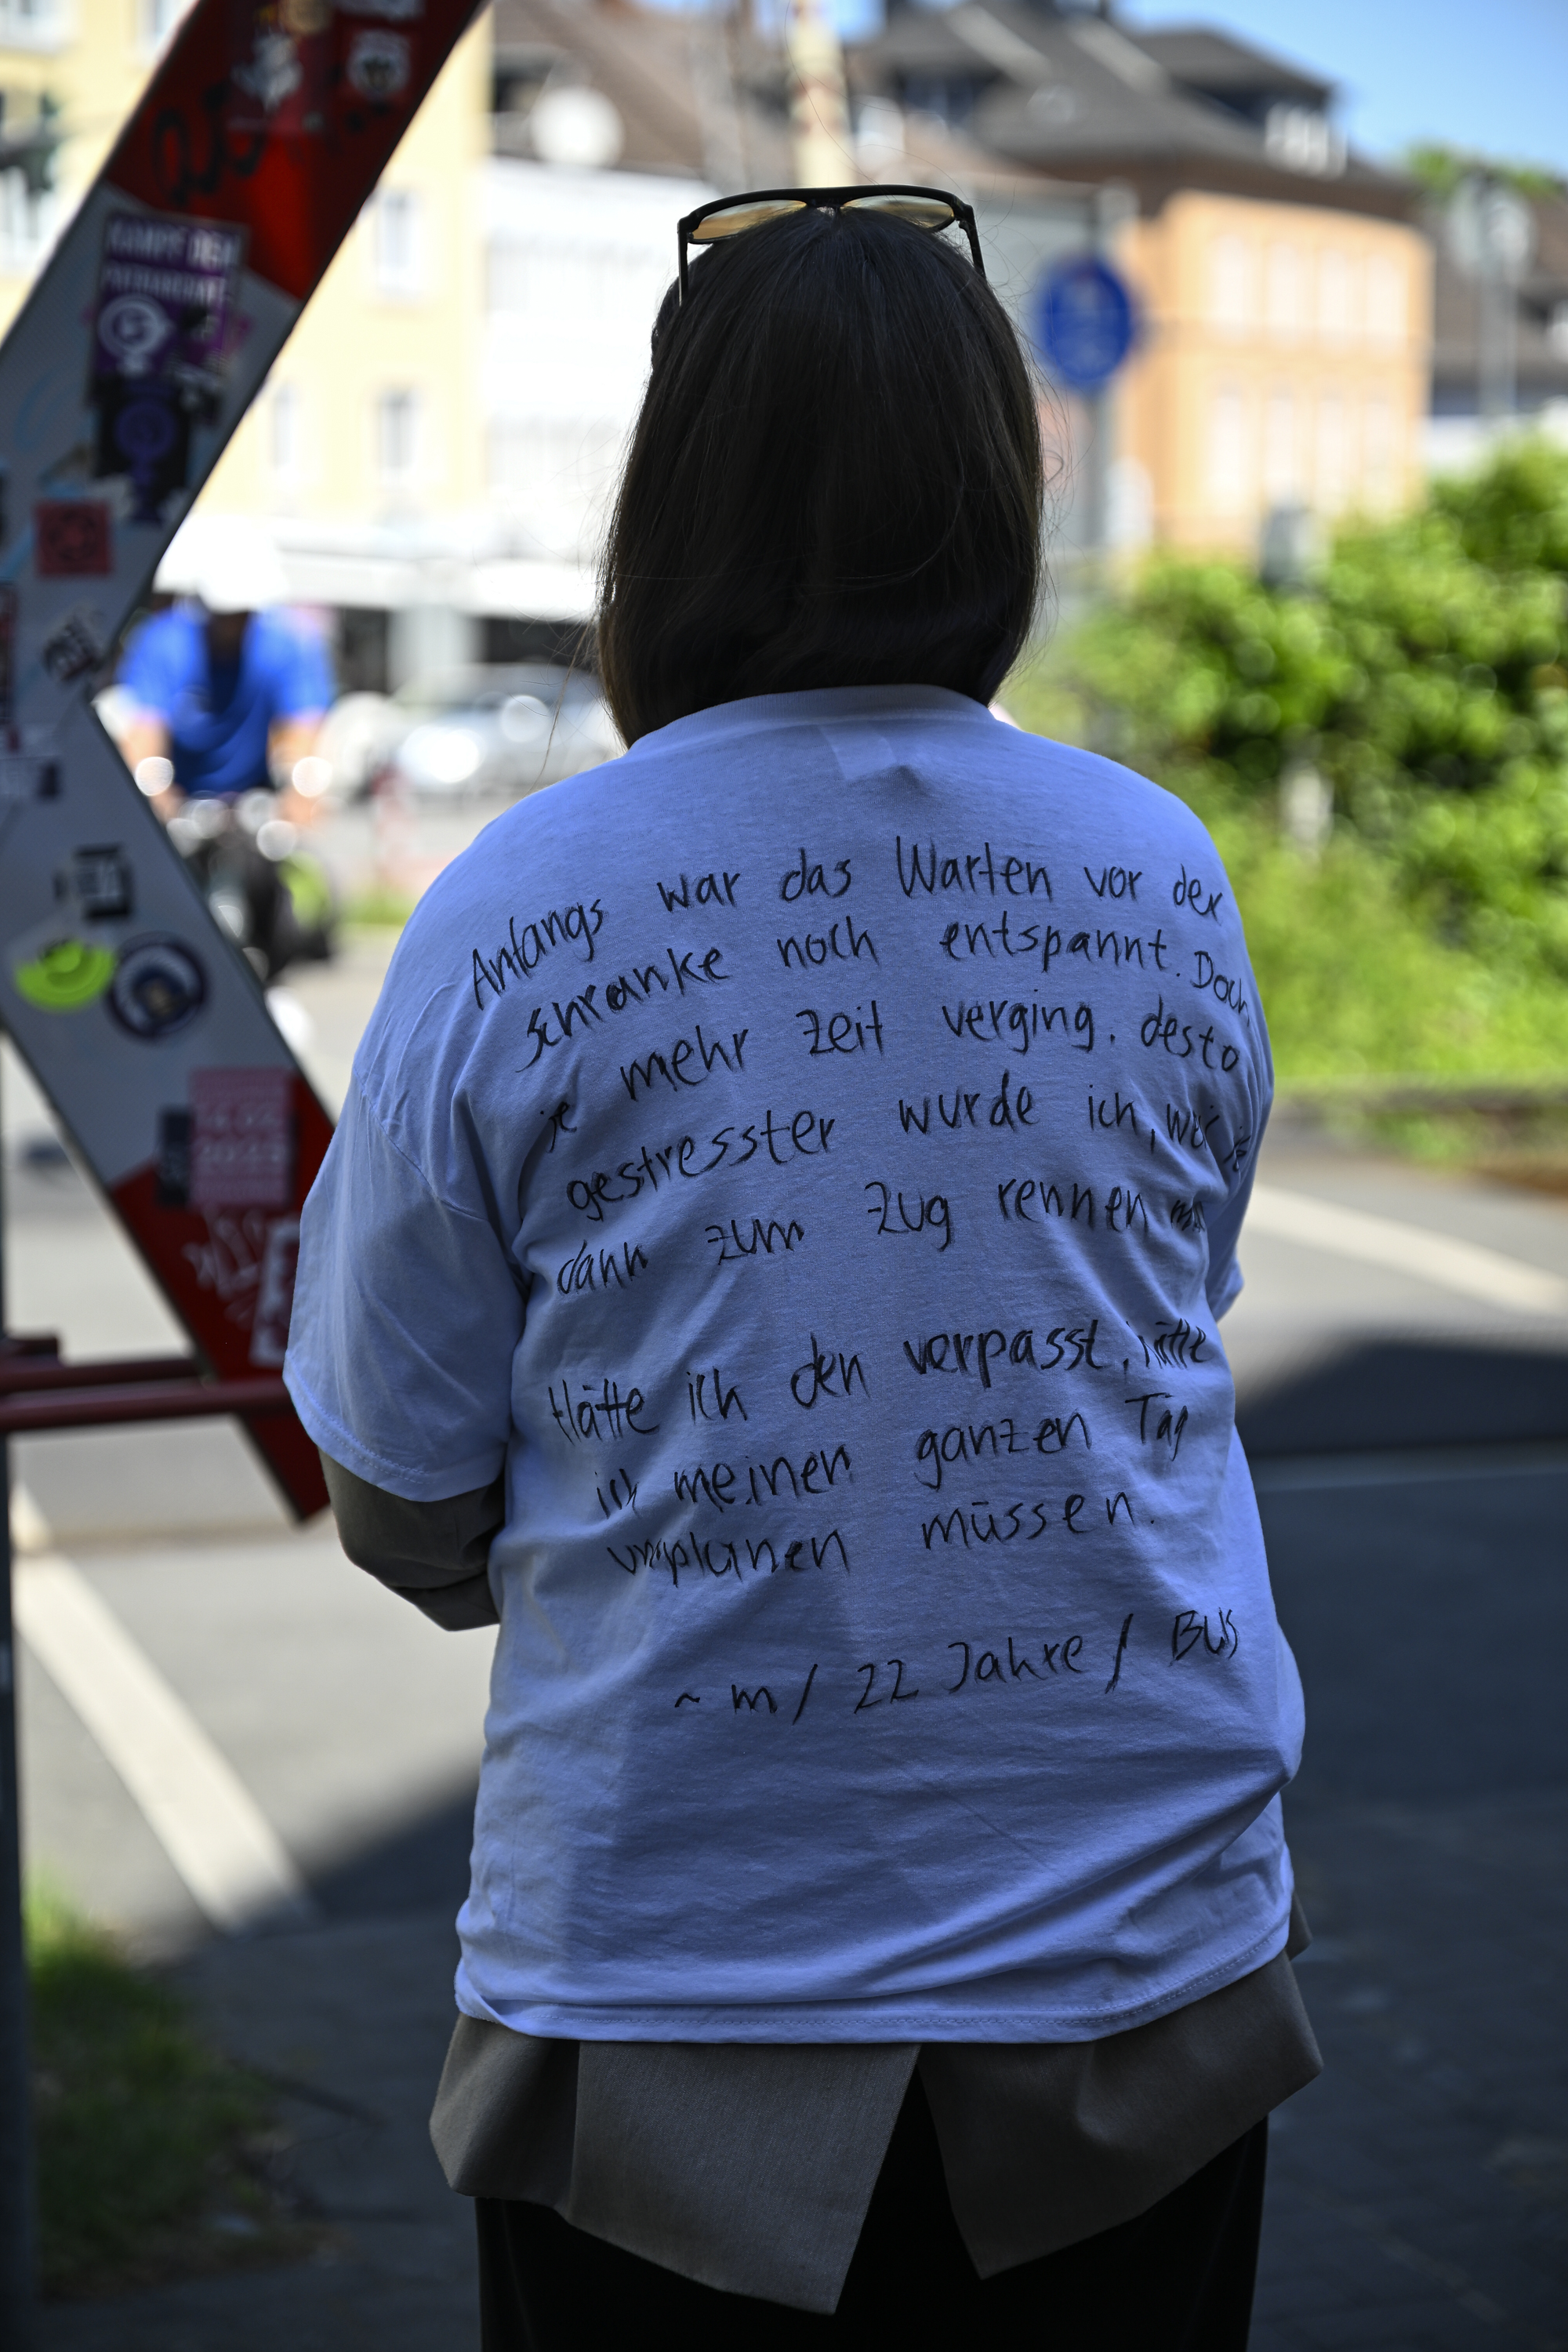 KAMPF DEM
PATRIARCHAT
2025
Anfangs war das Warten vor der
schranke noch entspannt. Doch
je mehr Zeit verging, desto
gestresster wurde ich, weil
dann zum Zug rennen
Hätte ich den verpasst, hätte
ich meinen ganzen Tag
umplanen müssen.
~ m / 22 Jahre / BUS